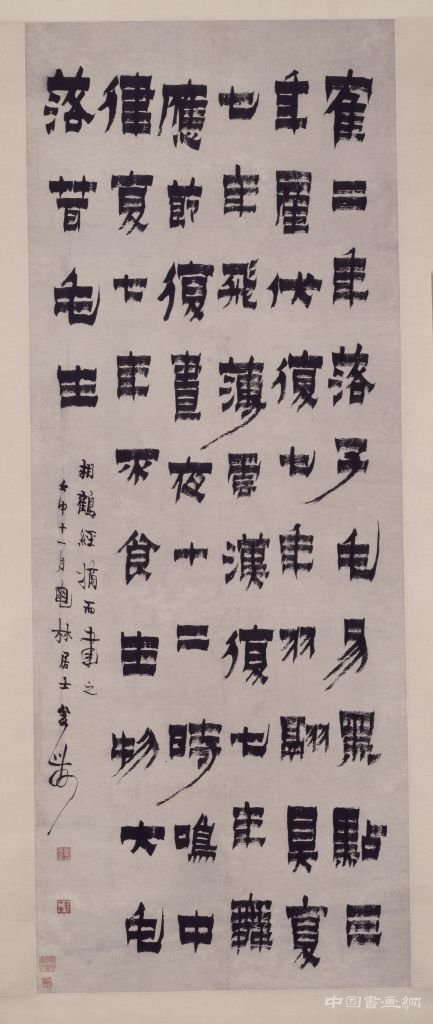 寉二年落子毛易黑點三
年產伏復七年羽翮具夏
七年飛薄雲漢復七年舞
應節復晝夜十二時鳴中
律夏七年不食生物大毛
落茸毛生
相鶴經摘而書之
壬申十一月林居士金農
中国書画網